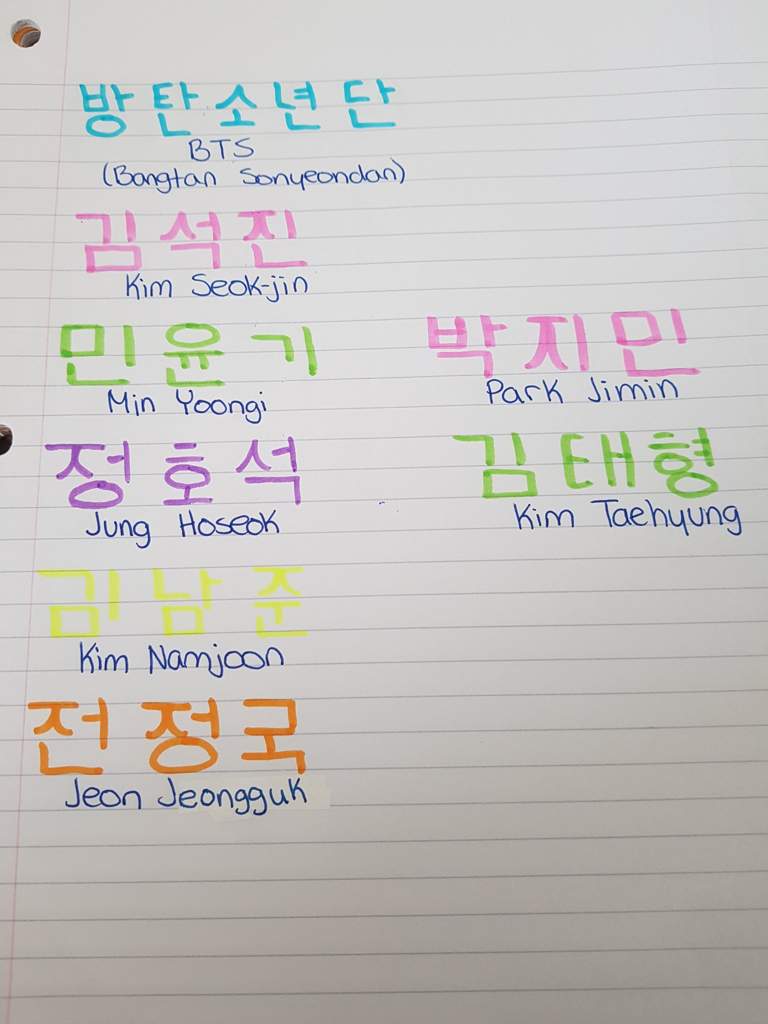 방탄소년단
BTS
(Bangtan Sonyeondan)
김석진
Kim Seok-jin
민윤기
Min Yoongi
박지민
Park Jimin
정호석
Jung Hoseok
김태형
Kim Taehyung
김남준
Kim Namjoon
전정국
Jeon Jeongguk